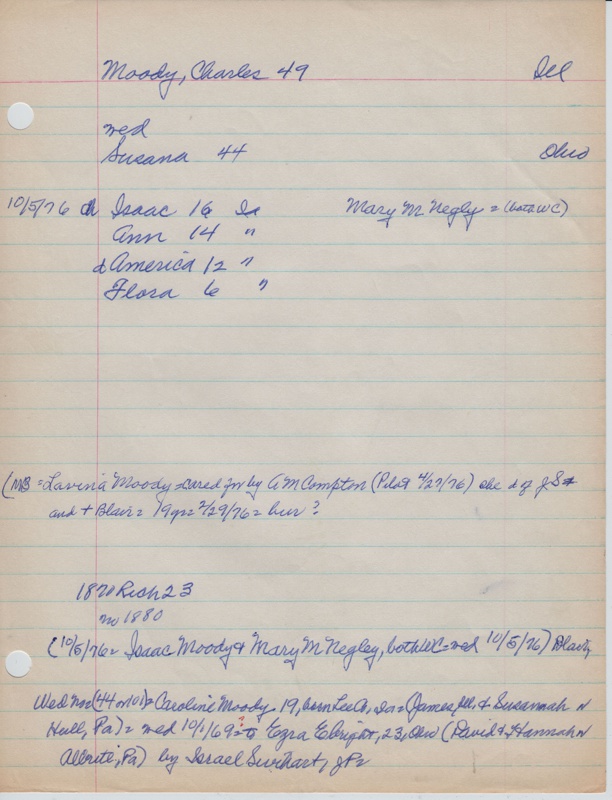 Moody, Charles 49 Ill
wed
Susana 44 Ohio
10/5/76 Isaac 16 Ia Mary M Negley = (both WC)
Ann 14 "
d America 12 "
Flora 6 "
(MB = Lavina Moody = cared for by A M Compton (Pilot 4/27/76) she d of J S
and + Blair = 19 2/29/76 = bur ?
1870 Rich 23
no 1880
(10/5/76 = Isaac Moody & Mary M Negley, both WC = wed 10/5/76)
Wed no (44 or 101) = Caroline Moody 19, born Lee Co, Ia = (James, Ill. & Susannah N
Hull, Pa) = wed 10/1/69 = ? Ezra Ebright, 23, Ohio (David & Hannah N
Albrite, Pa) by Israel JP